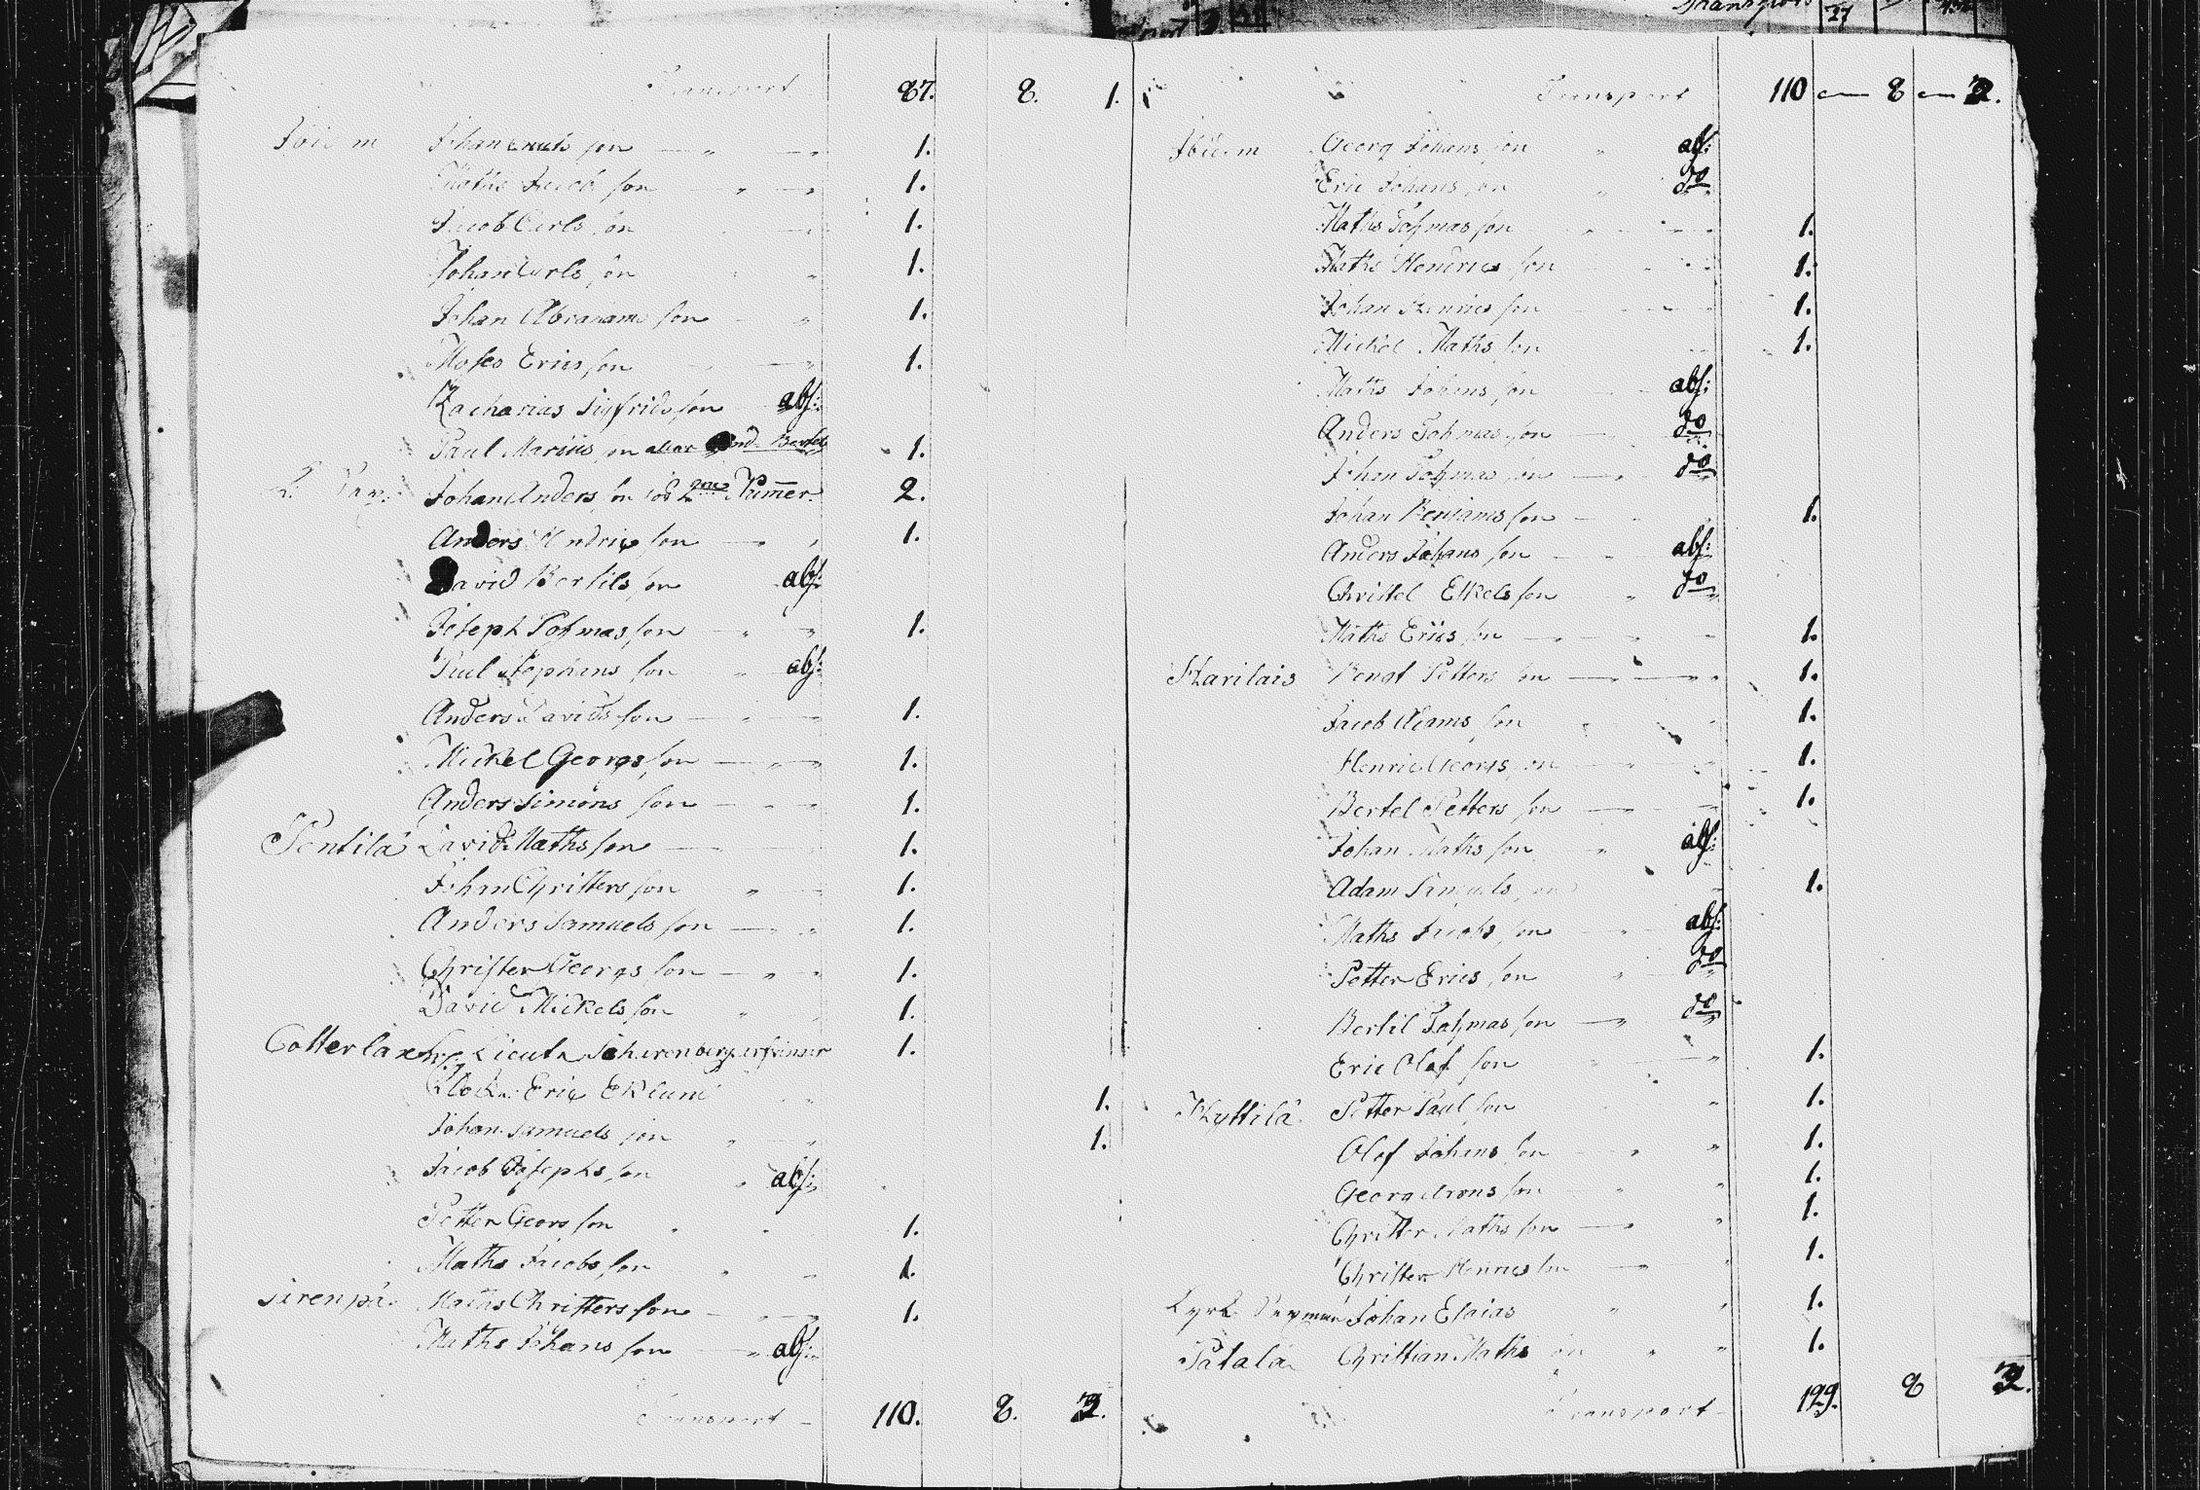 Transport 87. 8. 1.
Ibidem Johan Knuts son 1.
Maths Jacob son 1.
Jacob Carls son 1.
Johan Carls son 1.
Johan Abrahams son 1.
Moses Erics son 1.
Zacharias Sigfrids son abs:
Paul Marcus son 1.
Johan Anders son 2.
Anders Hendrics son 1.
David Bertils son abs:
Joseph Tohmas son 1.
Paul Stephans son abs:
Anders Davids son 1.
Mickel Georgs son 1.
Anders Simons son 1.
Pentilä David Maths son 1.
Johan Christers son 1.
Anders Samuels son 1.
Christer Georgs son 1.
David Mickels son 1.
Cotterlax Lieutn 1.
Klock: Eric Eklund 1.
Johan Samuels son 1.
Jacob Josephs son abs:
Petter Georgs son 1.
Maths Jacobs son 1.
Sirenpä Maths Christers son 1.
Maths Johans son abs:
Transport 110. 8. 3.
Transport 110 8 3.
Ibidem Georg Johans son abs:
Eric Johans son do
Maths Tohmas son 1.
Maths Hendrics son 1.
Johan Henrics son 1.
Mickel Maths son 1.
Maths Johans son abs:
Anders Tohmas son do
Johan Tohmas son do
Johan Benjamins son 1.
Anders Johans son abs:
Christel Eskels son do
Maths Erics son 1.
Karilais Bengt Petters son 1.
Jacob Adams son 1.
Henric Georgs son 1.
Bertel Petters son 1.
Johan Maths son abs:
Adam Samuels son 1.
Maths Jacobs son abs:
Petter Erics son do
Bertil Tohmas son do
Eric Olof son 1.
Kyttilä Petter Paul son 1.
Olof Johans son 1.
Georg Arons son 1.
Christer Maths son 1.
Christer Henrics son 1.
Johan Elaias 1.
Patala Christian Maths son 1.
Transport 129. 8 3.